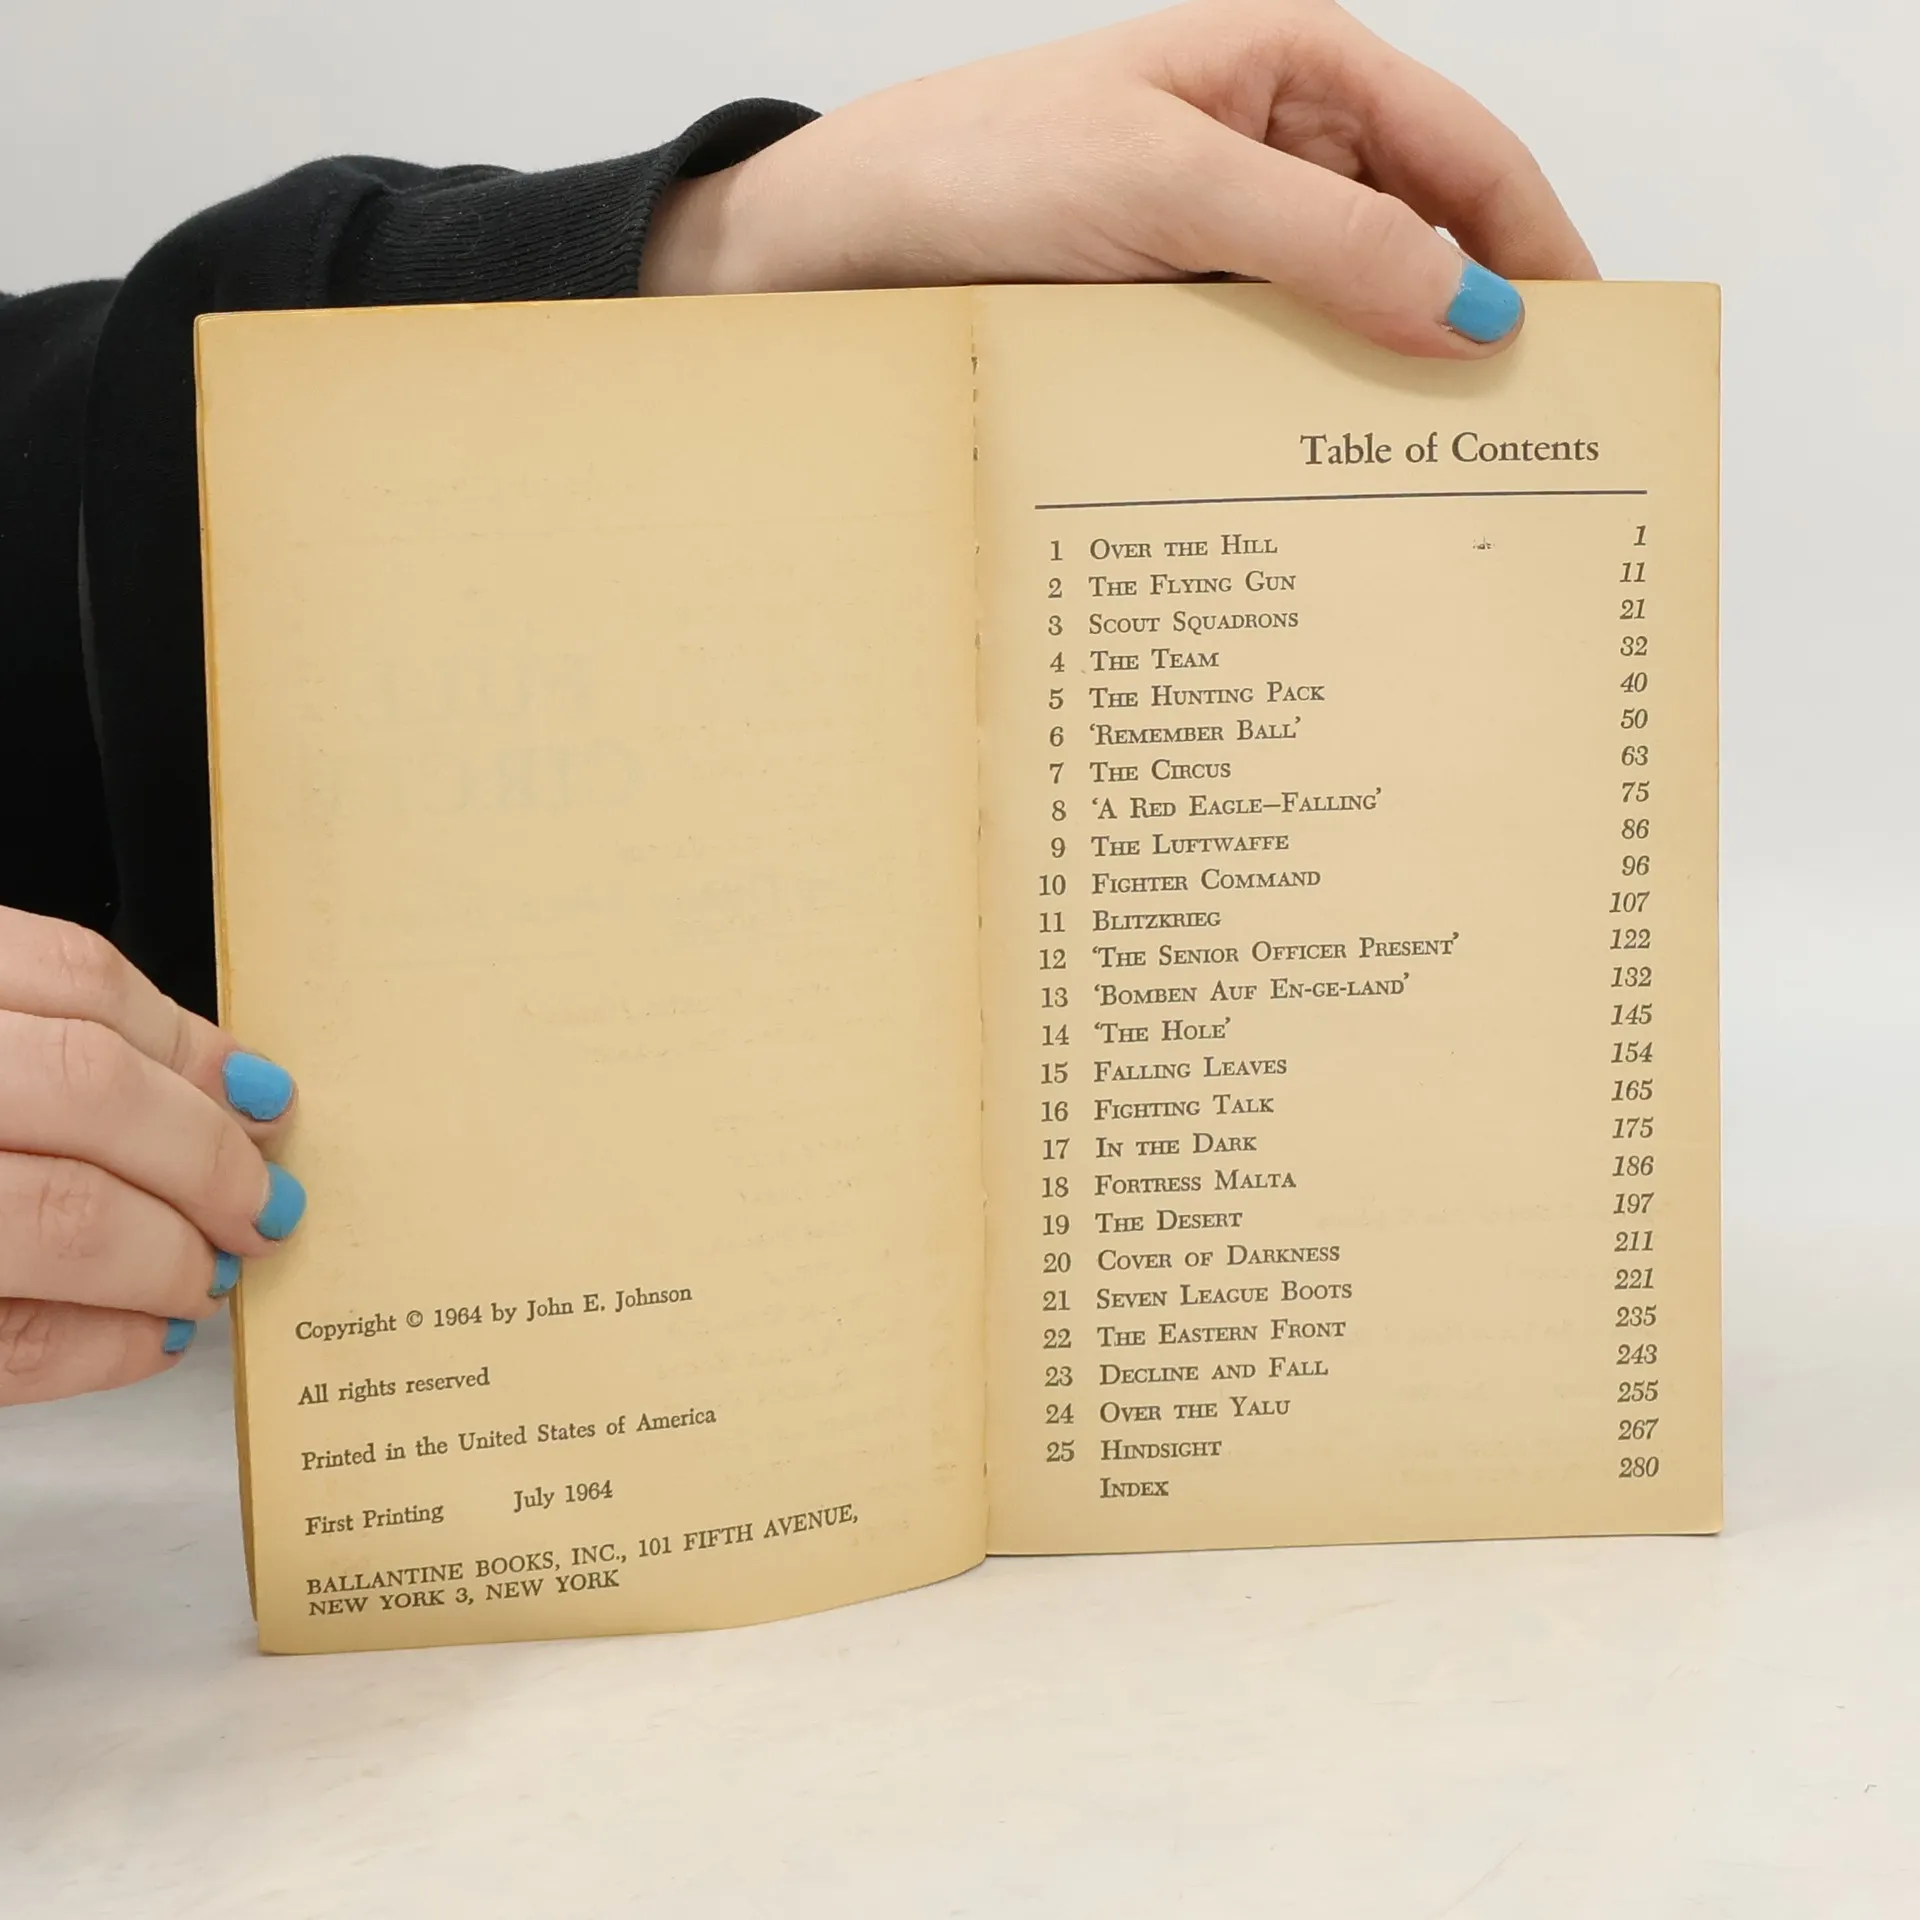 Copyright © 1964 by John E. Johnson
All rights reserved
Printed in the United States of America
First Printing July 1964
BALLANTINE BOOKS, INC., 101 FIFTH AVENUE,
NEW YORK 3, NEW YORK
Table of Contents
1 OVER THE HILL 1
2 THE FLYING GUN 11
3 SCOUT SQUADRONS 21
4 THE TEAM 32
5 THE HUNTING PACK 40
6 ‘REMEMBER BALL’ 50
7 THE CIRCUS 63
8 ‘A RED EAGLE—FALLING’ 75
9 THE LUFTWAFFE 86
10 FIGHTER COMMAND 96
11 BLITZKRIEG 107
12 ‘THE SENIOR OFFICER PRESENT’ 122
13 ‘BOMBEN AUF EN-GE-LAND’ 132
14 ‘THE HOLE’ 145
15 FALLING LEAVES 154
16 FIGHTING TALK 165
17 IN THE DARK 175
18 FORTRESS MALTA 186
19 THE DESERT 197
20 COVER OF DARKNESS 211
21 SEVEN LEAGUE BOOTS 221
22 THE EASTERN FRONT 235
23 DECLINE AND FALL 243
24 OVER THE YALU 255
25 HINDSIGHT 267
INDEX 280